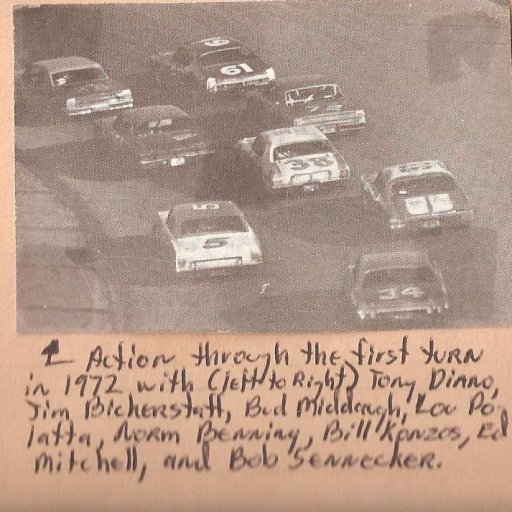 61
38
5
5
34
← Action through the first turn
in 1972 with (left to Right) Tony Diano,
Jim Bickerstaff, Bud Middaugh, Lou Po-
latta, Norm Benning, Bill Kanzos, Ed
Mitchell, and Bob Sennecker.